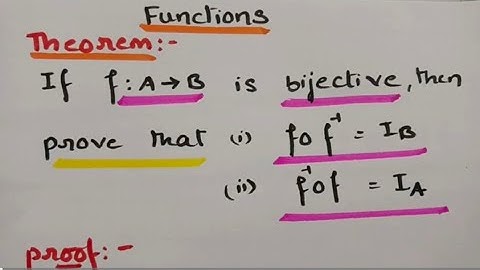 Functions
Theorem:-
If f:A→B is bijective, then
prove that (i) fof⁻¹ = I_B
(ii) f⁻¹of = I_A
proof:-